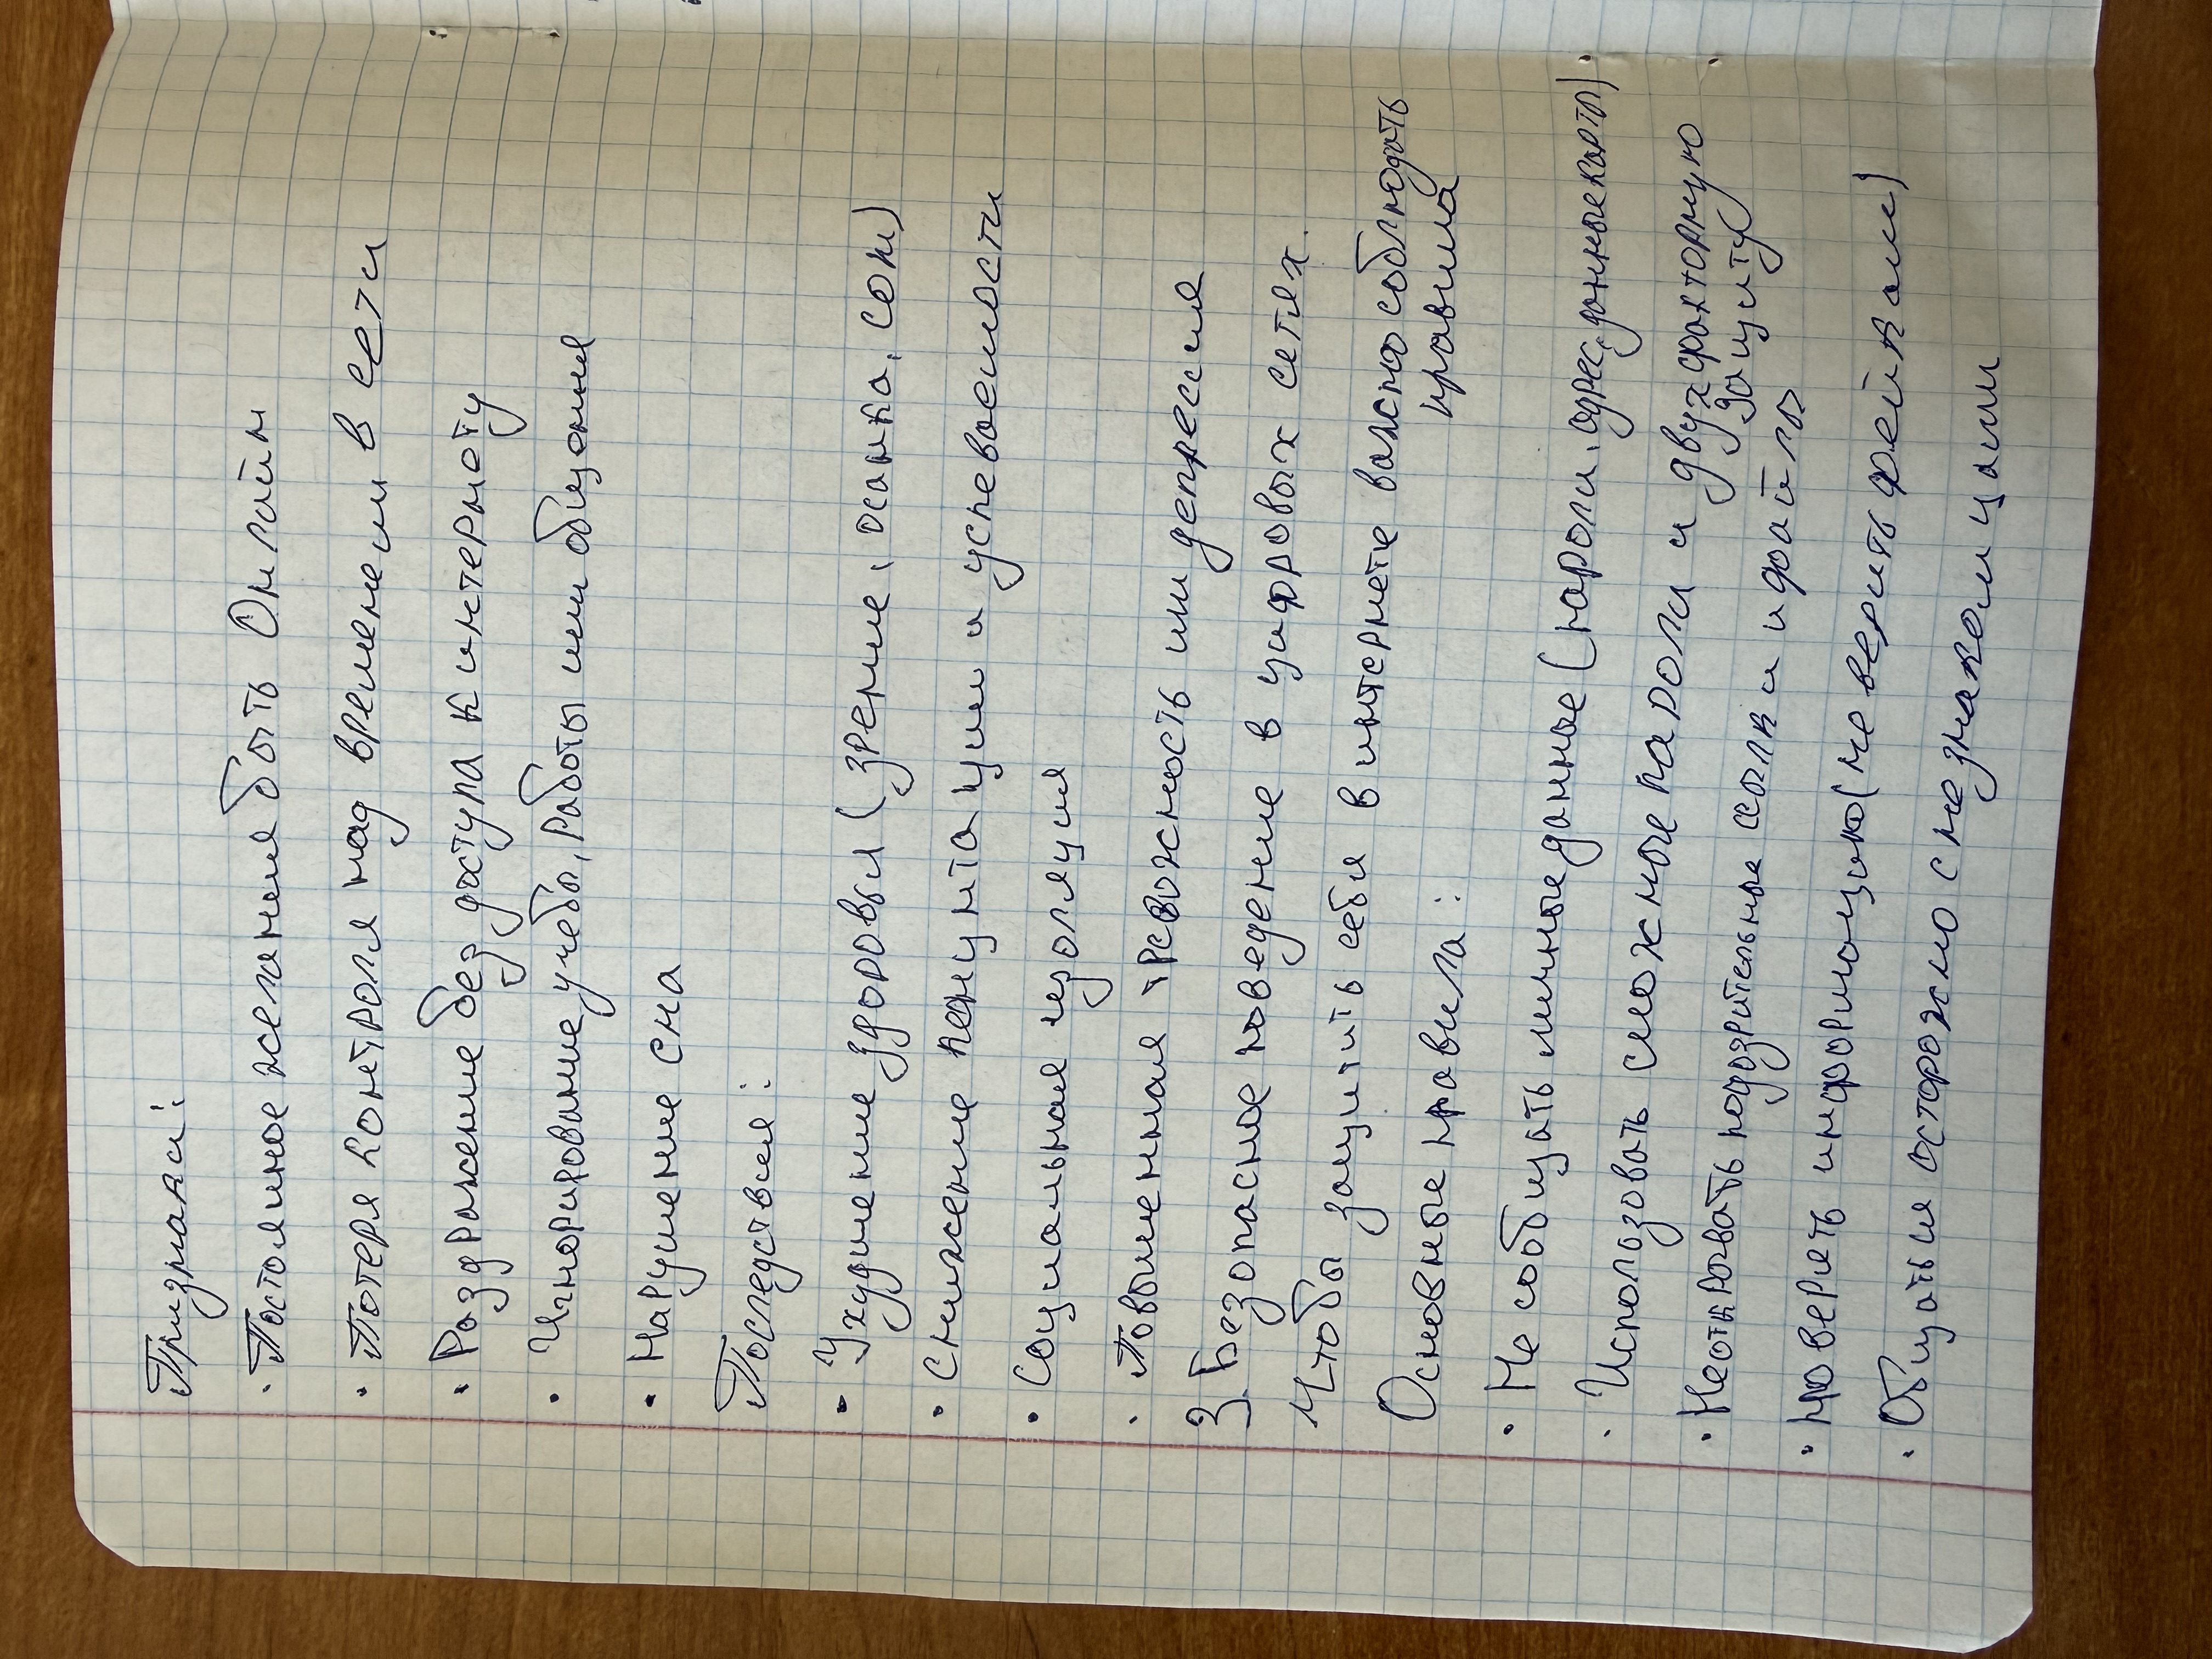 Признаки:
· Постоянное желание быть Онлайн
· Потеря контроля над временем в сети
· Раздражение без доступа к интернету
· Игнорирование учебы, работы или общения
· Нарушение сна
Последствия:
· Ухудшение здоровья (зрение, осанка, сон)
· Снижение концентрации и успеваемости
· Социальная изоляция
· Повышенная тревожность или депрессия
3. Безопасное поведение в цифровых сетях.
Чтобы защитить себя в интернете важно соблюдать
правила
Основные правила:
· Не сообщать личные данные (пароли, адрес, данные карты)
· Использовать сложные пароли и двухфакторную
защиту
· Не открывать подозрительные ссылки и файлы
· проверять информацию (не верить фейкам)
· Общаться осторожно с незнакомцами